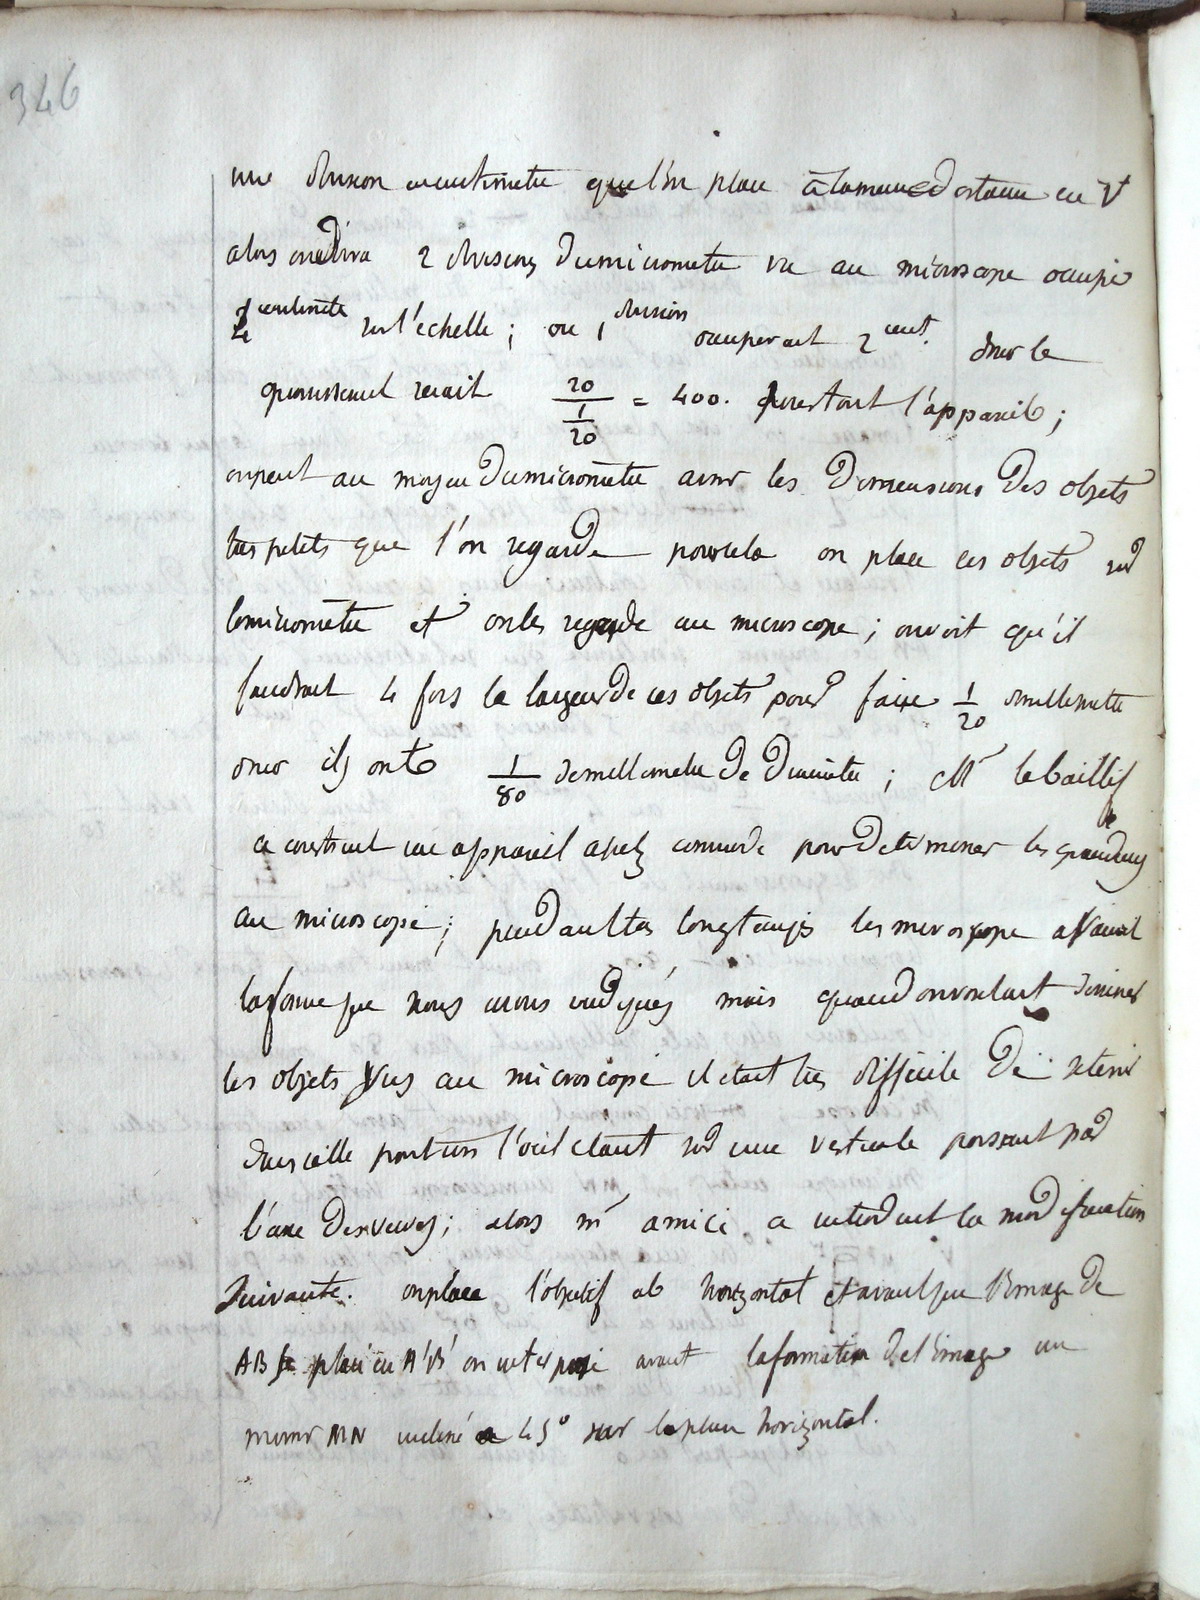 346
une division en centimetre que l'on place à la meme distance en V
alors on dira 2 divisions du micrometre vu au microscope occupe
4 centimetre sur l'echelle ; ou 1 division occuperait 2 cent. donc le
grossissement serait 20 / 1/20 = 400. pour tout l'appareil ;
on peut au moyen du micrometre avoir les dimensions des objets
tres petits que l'on regarde pour cela on place ces objets sur
le micrometre et on les regarde au microscope ; on voit qu'il
faudrait 4 fois la largeur de ces objets pour faire 1/20 de millimetre
donc ils ont 1/80 de millimetre de diametre ; Mr le baillif
a construit un appareil assez commode pour determiner les grandeurs
au microscope ; pendant tres longtemps les microscope avaient
la forme que nous avons indiqués mais quand on voulait dessiner
les objets vus au microscope il etait tres difficile de se tenir
dans cette position l'oeil etant sur une verticale passant par
l'axe des verres ; alors mr amici a introduit la modification
suivante. on place l'objectif ab horizontal et avant que l'image de
AB se place en A'B' on interpose avant la formation de l'image un
miroir MN incliné a 45° sur le plan horizontal.